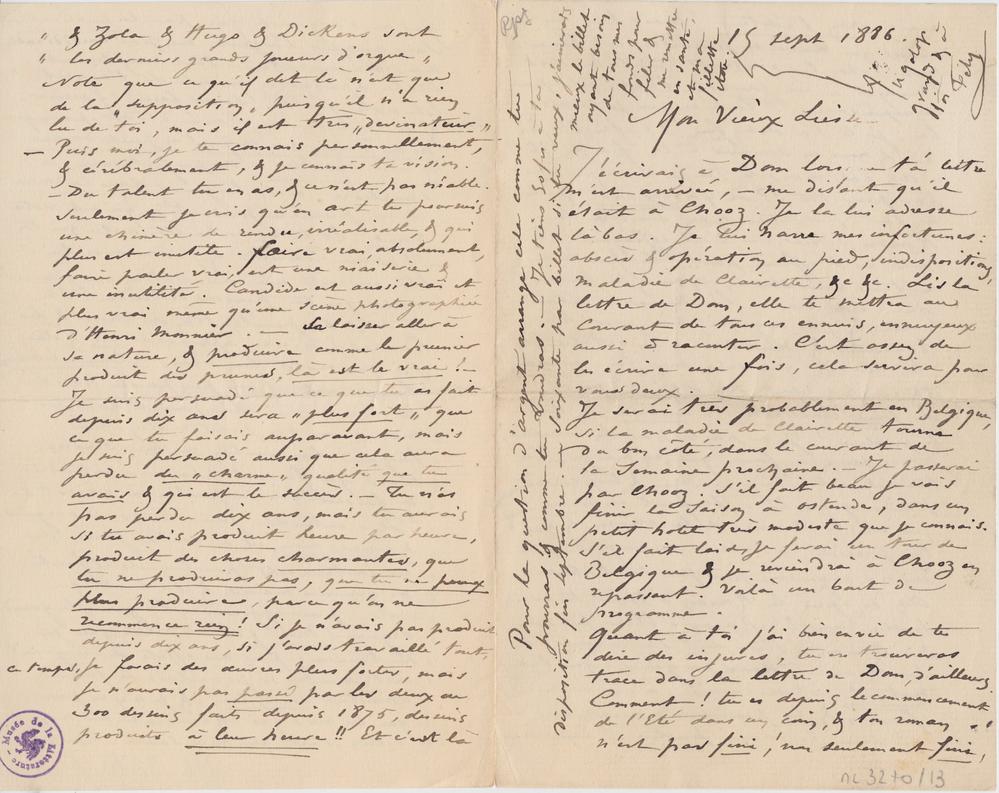 15 sept 1886.
Mon Vieux Liesse
J'écrivais à Dom lors... ta lettre
m'est arrivée, – me disant qu'il
était à Chooz. Je la lui adresse
là bas. Je lui narre mes infortunes:
abcès & opération au pied, indisposition,
maladie de Clairette, &c &c. Lis la
lettre de Dom, elle te mettra au
courant de tous ces ennuis, ennuyeux
aussi à raconter. C'est assez de
les écrire une fois, cela servira pour
vous deux.
Je serai très probablement en Belgique,
si la maladie de Clairette tourne
du bon côté, dans le courant de
la semaine prochaine. – Je passerai
par Chooz. S'il fait beau je vais
finir la saison à Ostende, dans un
petit hotel très modeste que je connais.
S'il fait laid, je ferai un tour de
Belgique & je reviendrai à Chooz en
repassant. Voilà un bout de
programme.
Quant à toi j'ai bien envie de te
dire des injures, tu en trouveras
trace dans la lettre de Dom, d'ailleurs.
Comment! tu es depuis le commencement
de l'Eté dans un coin, & ton roman
n'est pas fini! non seulement fini,
" & Zola & Hugo & Dickens sont
" les derniers grands joueurs d'orgue "
Note que ce qu'il dit là n'est que
de la "supposition", puisqu'il n'a rien
lu de toi, mais il est très "devinateur"
– Puis moi, je te connais personnellement,
& cérébralement, & je connais ta vision.
– Du talent tu en as, & ce n'est pas niable.
Seulement je crois qu'en art tu poursuis
une chimère de rendu, irréalisable, & qui
plus est inutile. Faire vrai, absolument,
faire parler vrai, est une niaiserie &
une inutilité. Candide est aussi vrai et
plus vrai même qu'une scène photographiée
d'Henri Monnier. – Se laisser aller à
sa nature, & produire comme le prunier
produit des prunes, là est le vrai! –
Je suis persuadé que ce que tu as fait
depuis dix ans sera "plus fort" que
ce que tu faisais auparavant, mais
je suis persuadé aussi que cela aura
perdu du "charme" qualité que tu
avais & qui est le succès. – Tu n'as
pas perdu dix ans, mais tu aurais
si tu avais produit heure par heure,
produit des choses charmantes, que
tu ne produiras pas, que tu ne peux
plus produire, parce qu'on ne
recommence rien! Si je n'avais pas produit
depuis dix ans, si j'avais travaillé tout
ce temps, je ferais des œuvres plus fortes, mais
je n'aurais pas passé par les deux ou
300 dessins faits depuis 1875, dessins
produits à leur heure!! Et c'est là
Pour la question d'argent arrange cela comme tu
pourras & comme tu voudras. – Je tiens 50 frs à ta
disposition fin septembre. – Soixante par billet si tu veux, j'aimerais
mieux le billet
ayant besoin
de tous mes
fonds pour
filer &
me remettre
en santé
et ma
fillette
aussi
à
Fély
Musée de la Littérature
ML 3270/13